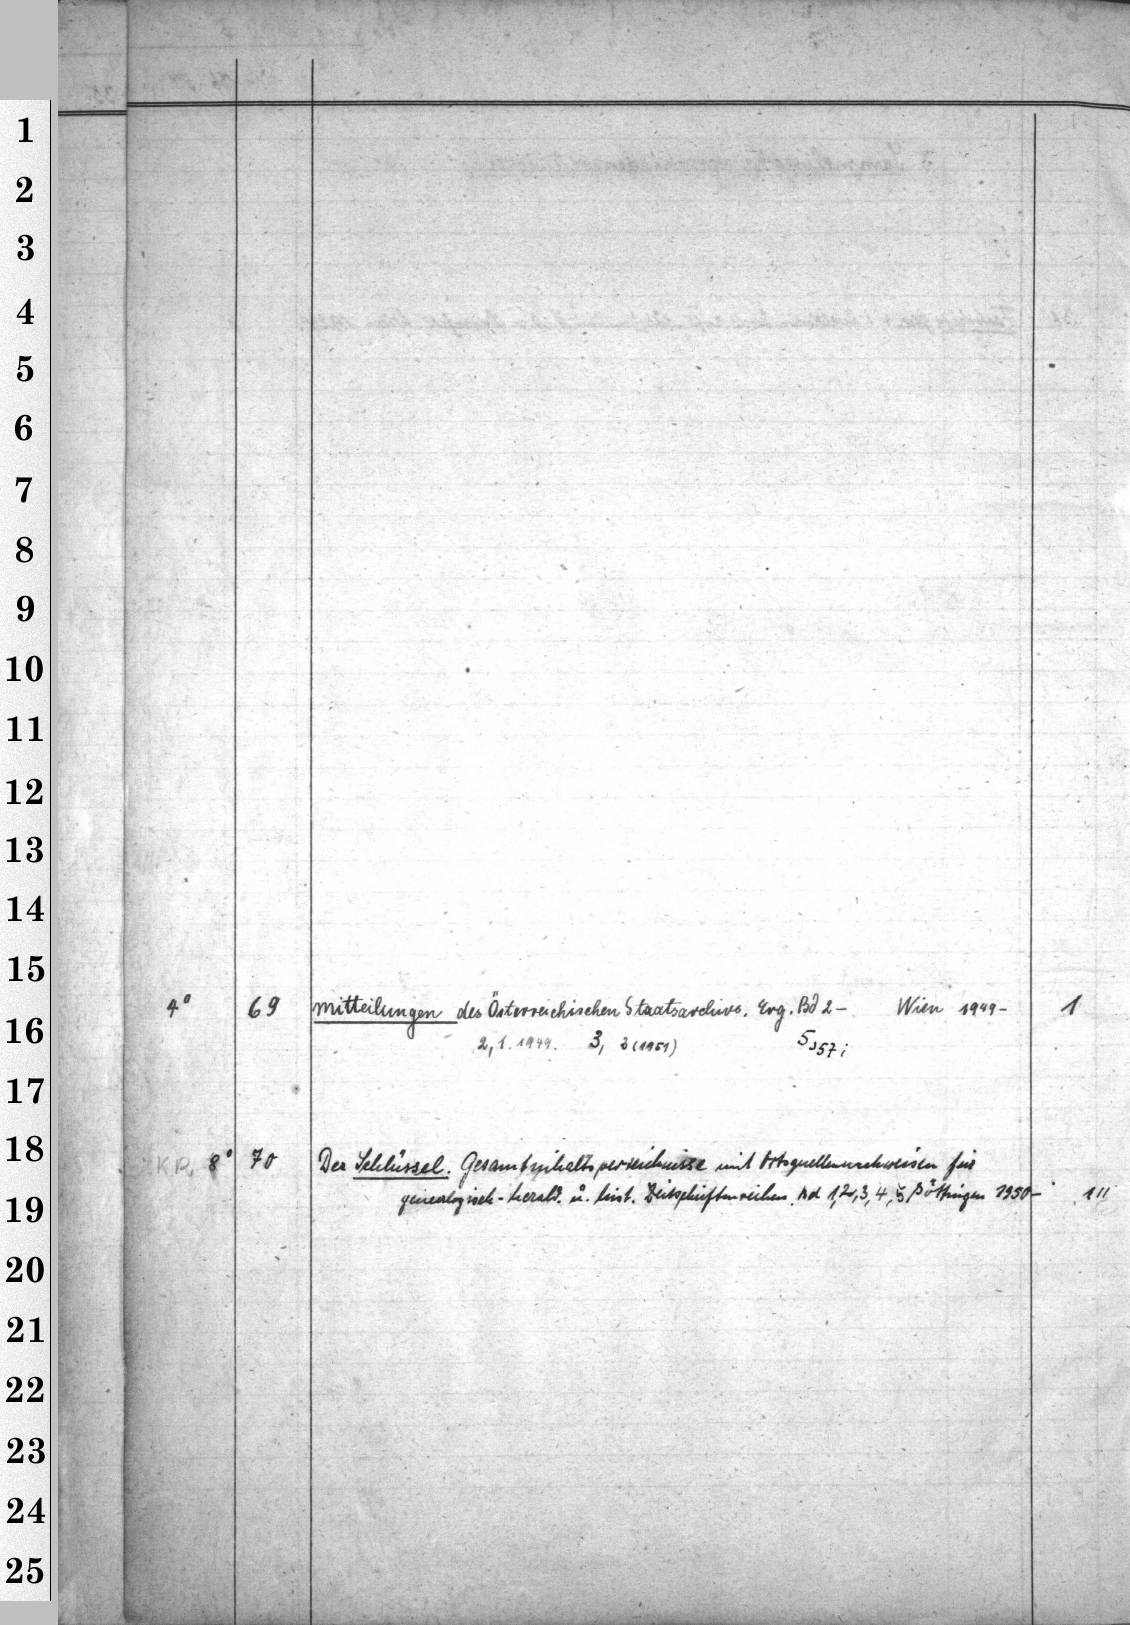 1
2
3
4
5
6
7
8
9
10
11
12
13
14
15
4° 69 Mitteilungen des Österreichischen Staatsarchivs. Erg. Bd 2– Wien 1949– 1
16
2, 1. 1949. 3, 2 (1951) S 357;
17
18
K.R. 8° 70 Der Schlüssel. Gesamtinhaltsverzeichnisse mit Ortsquellennachweisen für
genealogisch-herald. u. hist. Zeitschriftenreihen. Bd 1,2,3,4,5 Göttingen 1950– 111
19
20
21
22
23
24
25